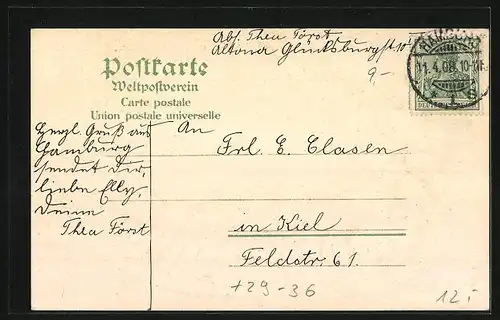 Abs. Thea Först.
Altona Glücksburgstr. 10
9,-
HAMBURG
11.4.08. 10-11
Postkarte
Weltpostverein
Carte postale
Union postale universelle
An
Frl. E. Clasen
in Kiel
Feldstr. 61.
Herzl. Gruß aus
Hamburg
sendet Dir,
liebe Elly,
Deine
Thea Först
+29-36
12.-